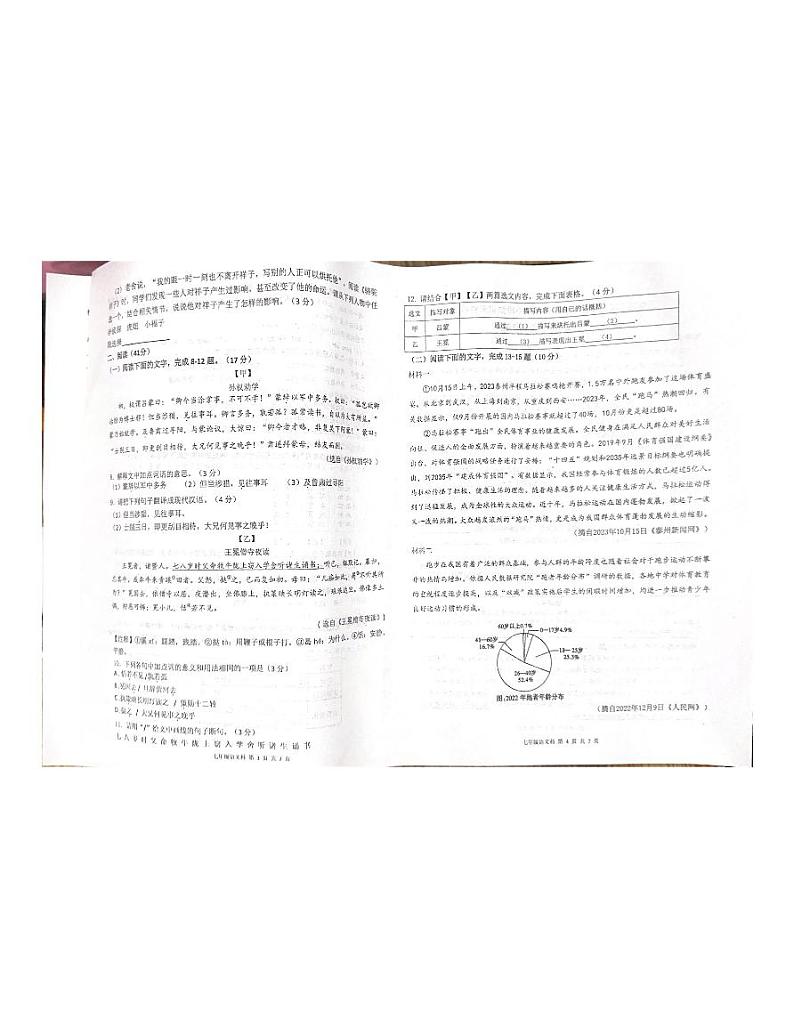 （2）老舍说，“我的眼一时一刻也不离开祥子，写别的人正可以烘托他”。阅读《骆驼
祥子》时，同学们发现一些人对祥子产生过影响，甚至改变了他的命运。请从下列人物中任
选一个，结合相关情节，说说他对祥子产生了怎样的影响。（3分）
虎妞 小福子
我选择
二、阅读（41分）
（一）阅读下面的文字，完成8-12题。（17分）
【甲】
孙权劝学
初，权谓吕蒙曰：“卿今当涂掌事，不可不学！”蒙辞以军中多务。权曰：“孤岂欲卿
治经为博士邪！但当涉猎，见往事耳。卿言多务，孰若孤？孤常读书，自以为大有所益。”
蒙乃始就学。及鲁肃过寻阳，与蒙论议，大惊曰：“卿今者才略，非复吴下阿蒙！”蒙曰：
“士别三日，即更刮目相待，大兄何见事之晚乎！”肃遂拜蒙母，结友而别。
（选自《孙权劝学》）
8. 解释文中加点词语的意思。（3分）
（1）蒙辞以军中多务 （2）但当涉猎，见往事耳 （3）及鲁肃过寻阳
9. 请把下列句子翻译成现代汉语。（4分）
（1）但当涉猎，见往事耳。
（2）士别三日，即更刮目相待，大兄何见事之晚乎！
【乙】
王冕僧寺夜读
王冕者，诸暨人。七八岁时父命牧牛陇上窃入学舍听诸生诵书；听已，辄默记。暮归，
忘其牛，或牵牛来责蹊田者。父怒，挞之，已而复如初。母曰：“儿痴如此，曷不听其所
为？”冕因去，依僧寺以居。夜潜出，坐佛膝上，执策映长明灯读之，琅琅达旦。佛像多土
偶，狞恶可怖；冕小儿，恬若不见。
（选自《王冕僧寺夜读》）
【注释】①蹊xī：践踏，踩踏。②挞tà：用鞭子或棍子打。③曷hé：为什么。④恬：安静，
10. 下列各句中加点词的意义和用法相同的一项是（3分）
A. 恬若不见/孰若孤
B. 冕因去/
C. 执策映长明灯读之 / 策勋十二转
D. 挞之 / 大兄何见事之晚乎
11. 请用“/”给文中画线的句子断句。（3分）
七 八 岁 时 父 命 牧 牛 陇 上 窃 入 学 舍 听 诸 生 诵 书
七年级语文科 第 3 页 共 7 页
12. 请结合【甲】【乙】两篇选文内容，完成下面表格。（4分）
选文 描写对象 描写内容（用自己的话概括）
甲 吕蒙 通过 （1） 描写来衬托出吕蒙 （2） 。
乙 王冕 通过 （3） 描写表现出王冕 （4） 。
（二）阅读下面的文字，完成13-15题（10分）
材料一
①10月15日上午，2023泰州半程马拉松赛鸣枪开赛，1.5万名中外跑友参加了这场体育盛
会。从北京到武汉，从上海到南京，从重庆到西安……2023年，全民“跑马”热潮回归。有
关数据显示，仅9月份开展的国内马拉松赛事就超过了40场，10月份更是超过80场。
②马拉松赛事“跑出”全民体育事业的健康发展。全民健身在满足人民群众对美好生活
向往、促进人的全面发展方面，扮演着越来越重要的角色。2019年9月《体育强国建设纲要》
出台，对体育强国的战略任务进行了安排；“十四五”规划和2035年远景目标纲要也明确提
出，到2035年“建成体育强国”。有数据显示，我国经常参与体育锻炼的人数已超过5亿人。
马拉松传播了积极、健康生活的理念，随着越来越多的人关注健康生活方式，马拉松运动得
到了迅猛发展，成为全球性的大众运动。近十年，马拉松运动在国内蓬勃发展，掀起了一波
又一波的热潮。大众越发浓烈的“跑马”热情，更是成为我国群众体育蓬勃发展的生动缩影。
（摘自2023年10月15日《泰州新闻网》）
材料二
跑步在我国有着广泛的群众基础，参与人群的年龄跨度也随着社会对于跑步运动不断攀
升的热情而增加。依据人民数据研究院“跑者年龄分布”调研的数据，各地中学对体育教育
的重视程度逐步提高，以及“双减”政策实施后学生的闲暇时间增加，均进一步推动青少年
良好运动习惯的形成。
60岁以上0.7%
0—17岁4.9%
41—60岁
16.7%
18—25岁
25.3%
26—40岁
52.4%
图：2022年跑者年龄分布
（摘自2022年12月9日《人民网》）
七年级语文科 第 4 页 共 7 页